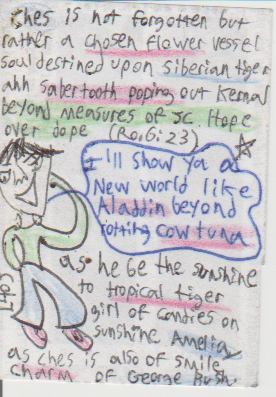 Ches is not forgotten but
rather a chosen flower vessel
soul destined upon siberian tiger
ahh sabertooth poping out Kernal
beyond measures of JC Hope
over dope (Ro:6:23)
I'll show ya a
New World like
Aladdin beyond
rotting cow tuna
as he be the sunshine
to tropical tiger
girl of candies on
sunshine Amelia
as ches is also of smile
charm of George Bush.